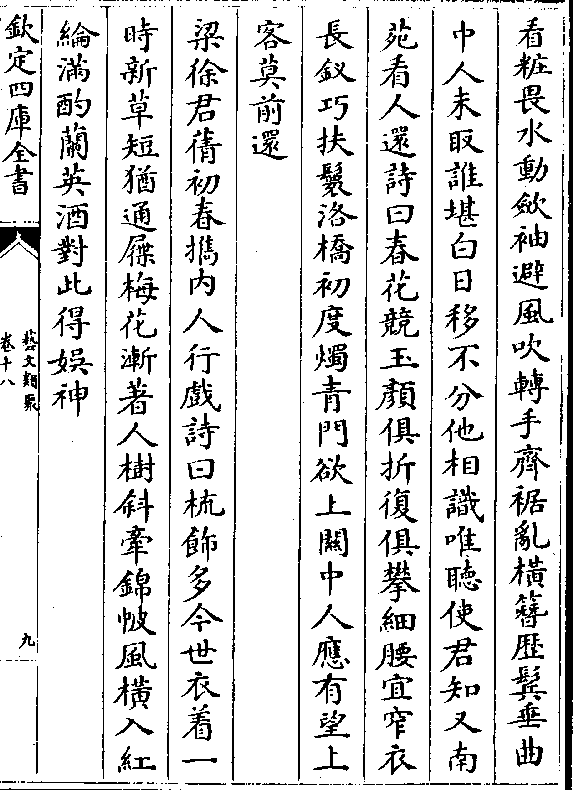 看粧畏水動斂袖避風吹轉手齊裾亂橫簪歴鬂垂曲
中人未取誰堪白日移不分他相識唯聽使君知又南
苑看人還詩曰春花競玉顏俱折復俱攀細腰宜窄衣
長釵巧扶鬟洛橋初度燭青門欲上關中人應有望上
客莫前還
梁徐君蒨初春攜内人行戲詩曰梳飾多今世衣着一
時新草短猶通屧梅花漸著人樹斜牽錦帔風橫入紅
綸滿酌蘭英酒對此得娯神
欽定四庫全書
藝文類聚
卷十八
九